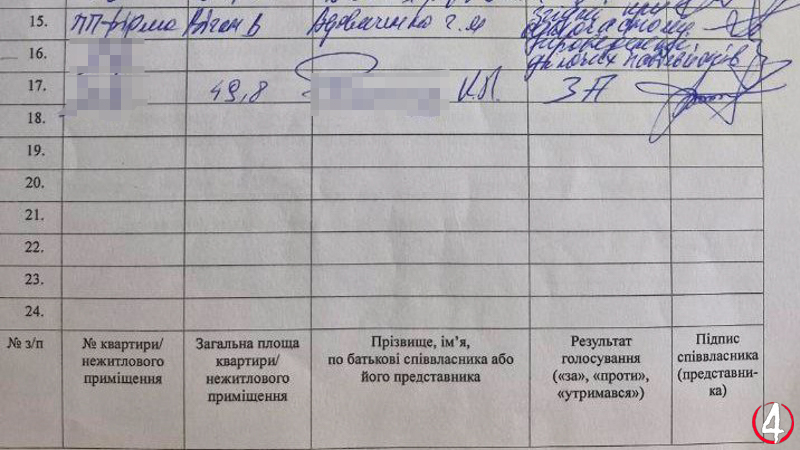 15. ПП фірма
16.
17. 49,8 К.П. ЗА
18.
19.
20.
21.
22.
23.
24.
№ з/п № квартири/ нежитлового приміщення Загальна площа квартири/ нежитлового приміщення Прізвище, ім’я, по батькові співвласника або його представника Результат голосування («за», «проти», «утримався») Підпис співвласника (представни- ка)
4